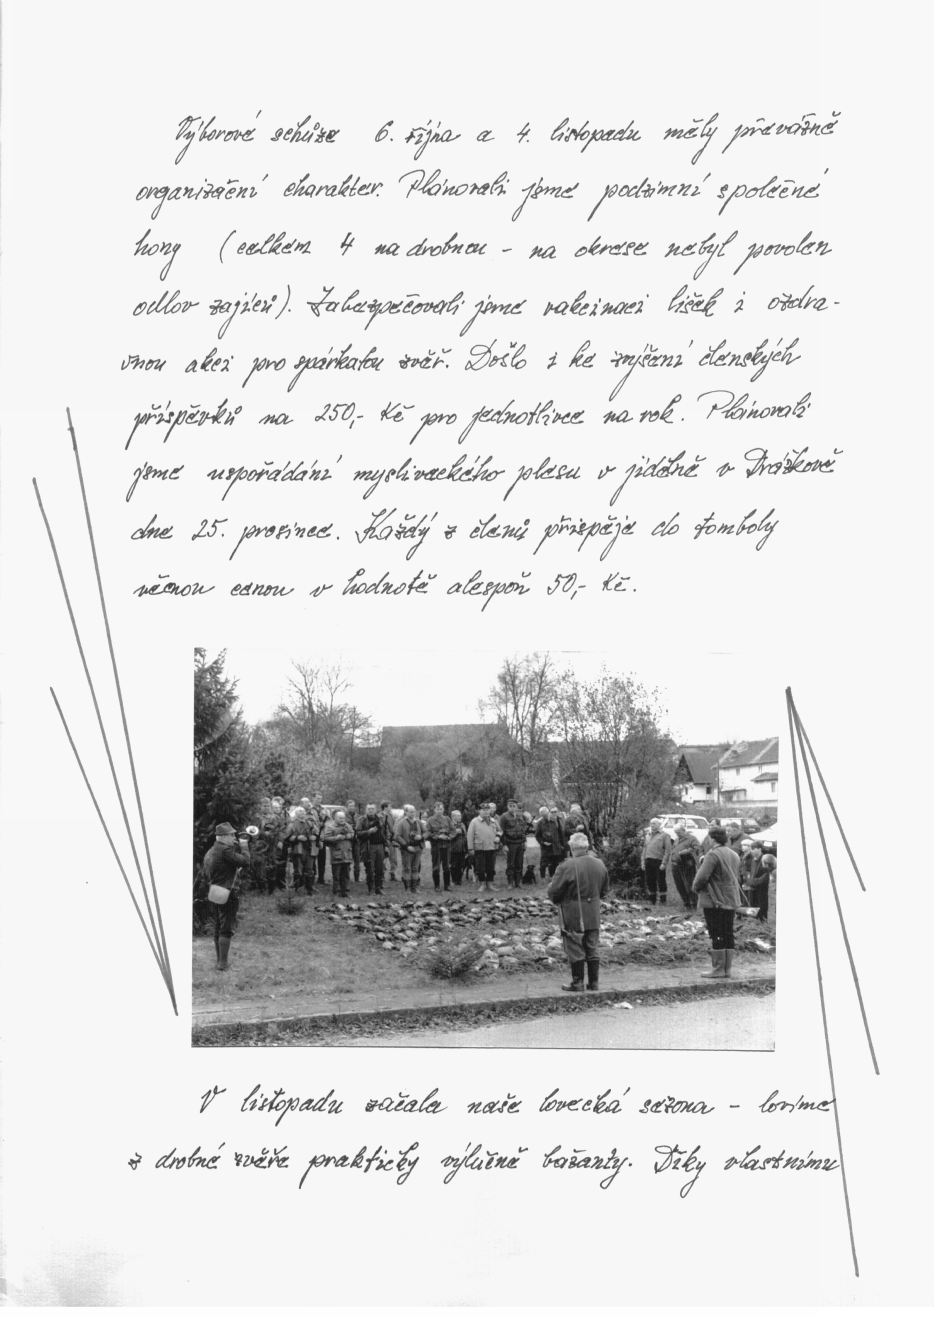 Výborové schůze 6. října a 4. listopadu měly převážně
organizační charakter. Plánovali jsme podzimní společné
hony (celkem 4 na drobnou - na okrese nebyl povolen
odlov zajíců). Zabezpečovali jsme vakcinaci lišek i ozdra-
vnou akci pro spárkatou zvěř. Došlo i ke zvýšení členských
příspěvků na 250,- Kč pro jednotlivce na rok. Plánovali
jsme uspořádání mysliveckého plesu v jídelně v Dražkově
dne 25. prosince. Každý z členů přispěje do tomboly
věcnou cenou v hodnotě alespoň 50,- Kč.
V listopadu začala naše lovecká sezona - lovíme
z drobné zvěře prakticky výlučně bažanty. Díky vlastnímu